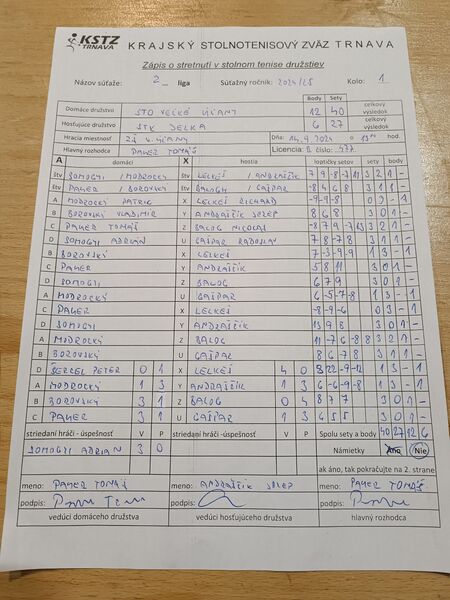 KSTZ TRNAVA KRAJSKÝ STOLNOTENISOVÝ ZVÄZ TRNAVA
Zápis o stretnutí v stolnom tenise družstiev
Názov súťaže: 2 liga Súťažný ročník: 2024/25 Kolo: 1
Body Sety
Domáce družstvo STO VEĽKÉ ÚĽANY 12 40 celkový výsledok
Hosťujúce družstvo STK DELKA 6 27 celkový výsledok
Hracia miestnosť ZŠ V. ÚĽANY Dňa: 14.9.2024 o hod.
Hlavný rozhodca PAYER TOMÁŠ Licencia: B číslo: 477
A domáci X hostia loptičky setov sety body
štv SOMOGYI / MODROCKÝ štv LELKEŠ / ANDRÁŠČIK 7 9 -8 -7 11 3 2 1 -
štv PAYER / BOROVSKÝ štv BALOGH / GAŠPAR -8 4 6 8 3 1 1 -
A MODROCKÝ PATRIC X LELKEŠ RICHARD -9 -9 -8 0 3 - 1
B BOROVSKÝ VLADIMIR Y ANDRÁŠČIK JOZEF 8 6 8 3 0 1 -
C PAYER TOMÁŠ Z BALOG NICOLAS -8 7 9 -7 3 2 1 -
D SOMOGYI ADRIAN U GAŠPAR RADOSLAV 7 8 -7 8 3 1 1 -
B BOROVSKÝ X LELKEŠ 7 -3 -9 -9 1 3 - 1
C PAYER Y ANDRÁŠČIK 5 8 11 3 0 1 -
D SOMOGYI Z BALOG 6 7 9 3 0 1 -
A MODROCKÝ U GAŠPAR 6 -5 -7 -8 1 3 - 1
C PAYER X LELKEŠ -8 -9 -6 0 3 - 1
D SOMOGYI Y ANDRÁŠČIK 13 9 8 3 0 1 -
A MODROCKÝ Z BALOG 11 -7 6 -8 8 3 2 1 -
B BOROVSKÝ U GAŠPAR 8 6 -7 8 3 1 1 -
D PETER 0 1 X LELKEŠ 4 0 1 3 - 1
A MODROCKÝ 1 3 Y ANDRÁŠČIK 1 3 6 -6 -9 -8 1 3 - 1
B BOROVSKÝ 3 1 Z BALOG 0 4 8 7 7 3 0 1 -
C PAYER 3 1 U GAŠPAR 1 3 6 5 5 3 0 1 -
striedaní hráči - úspešnosť V P striedaní hráči - úspešnosť V P Spolu sety a body 40 27 12 6
SOMOGYI ADRIAN 3 0 Námietky Áno Nie
ak áno, tak pokračujte na 2. strane
meno: PAYER TOMÁŠ meno: ANDRÁŠČIK JOZEF meno: PAYER TOMÁŠ
podpis: podpis: podpis:
vedúci domáceho družstva vedúci hosťujúceho družstva hlavný rozhodca